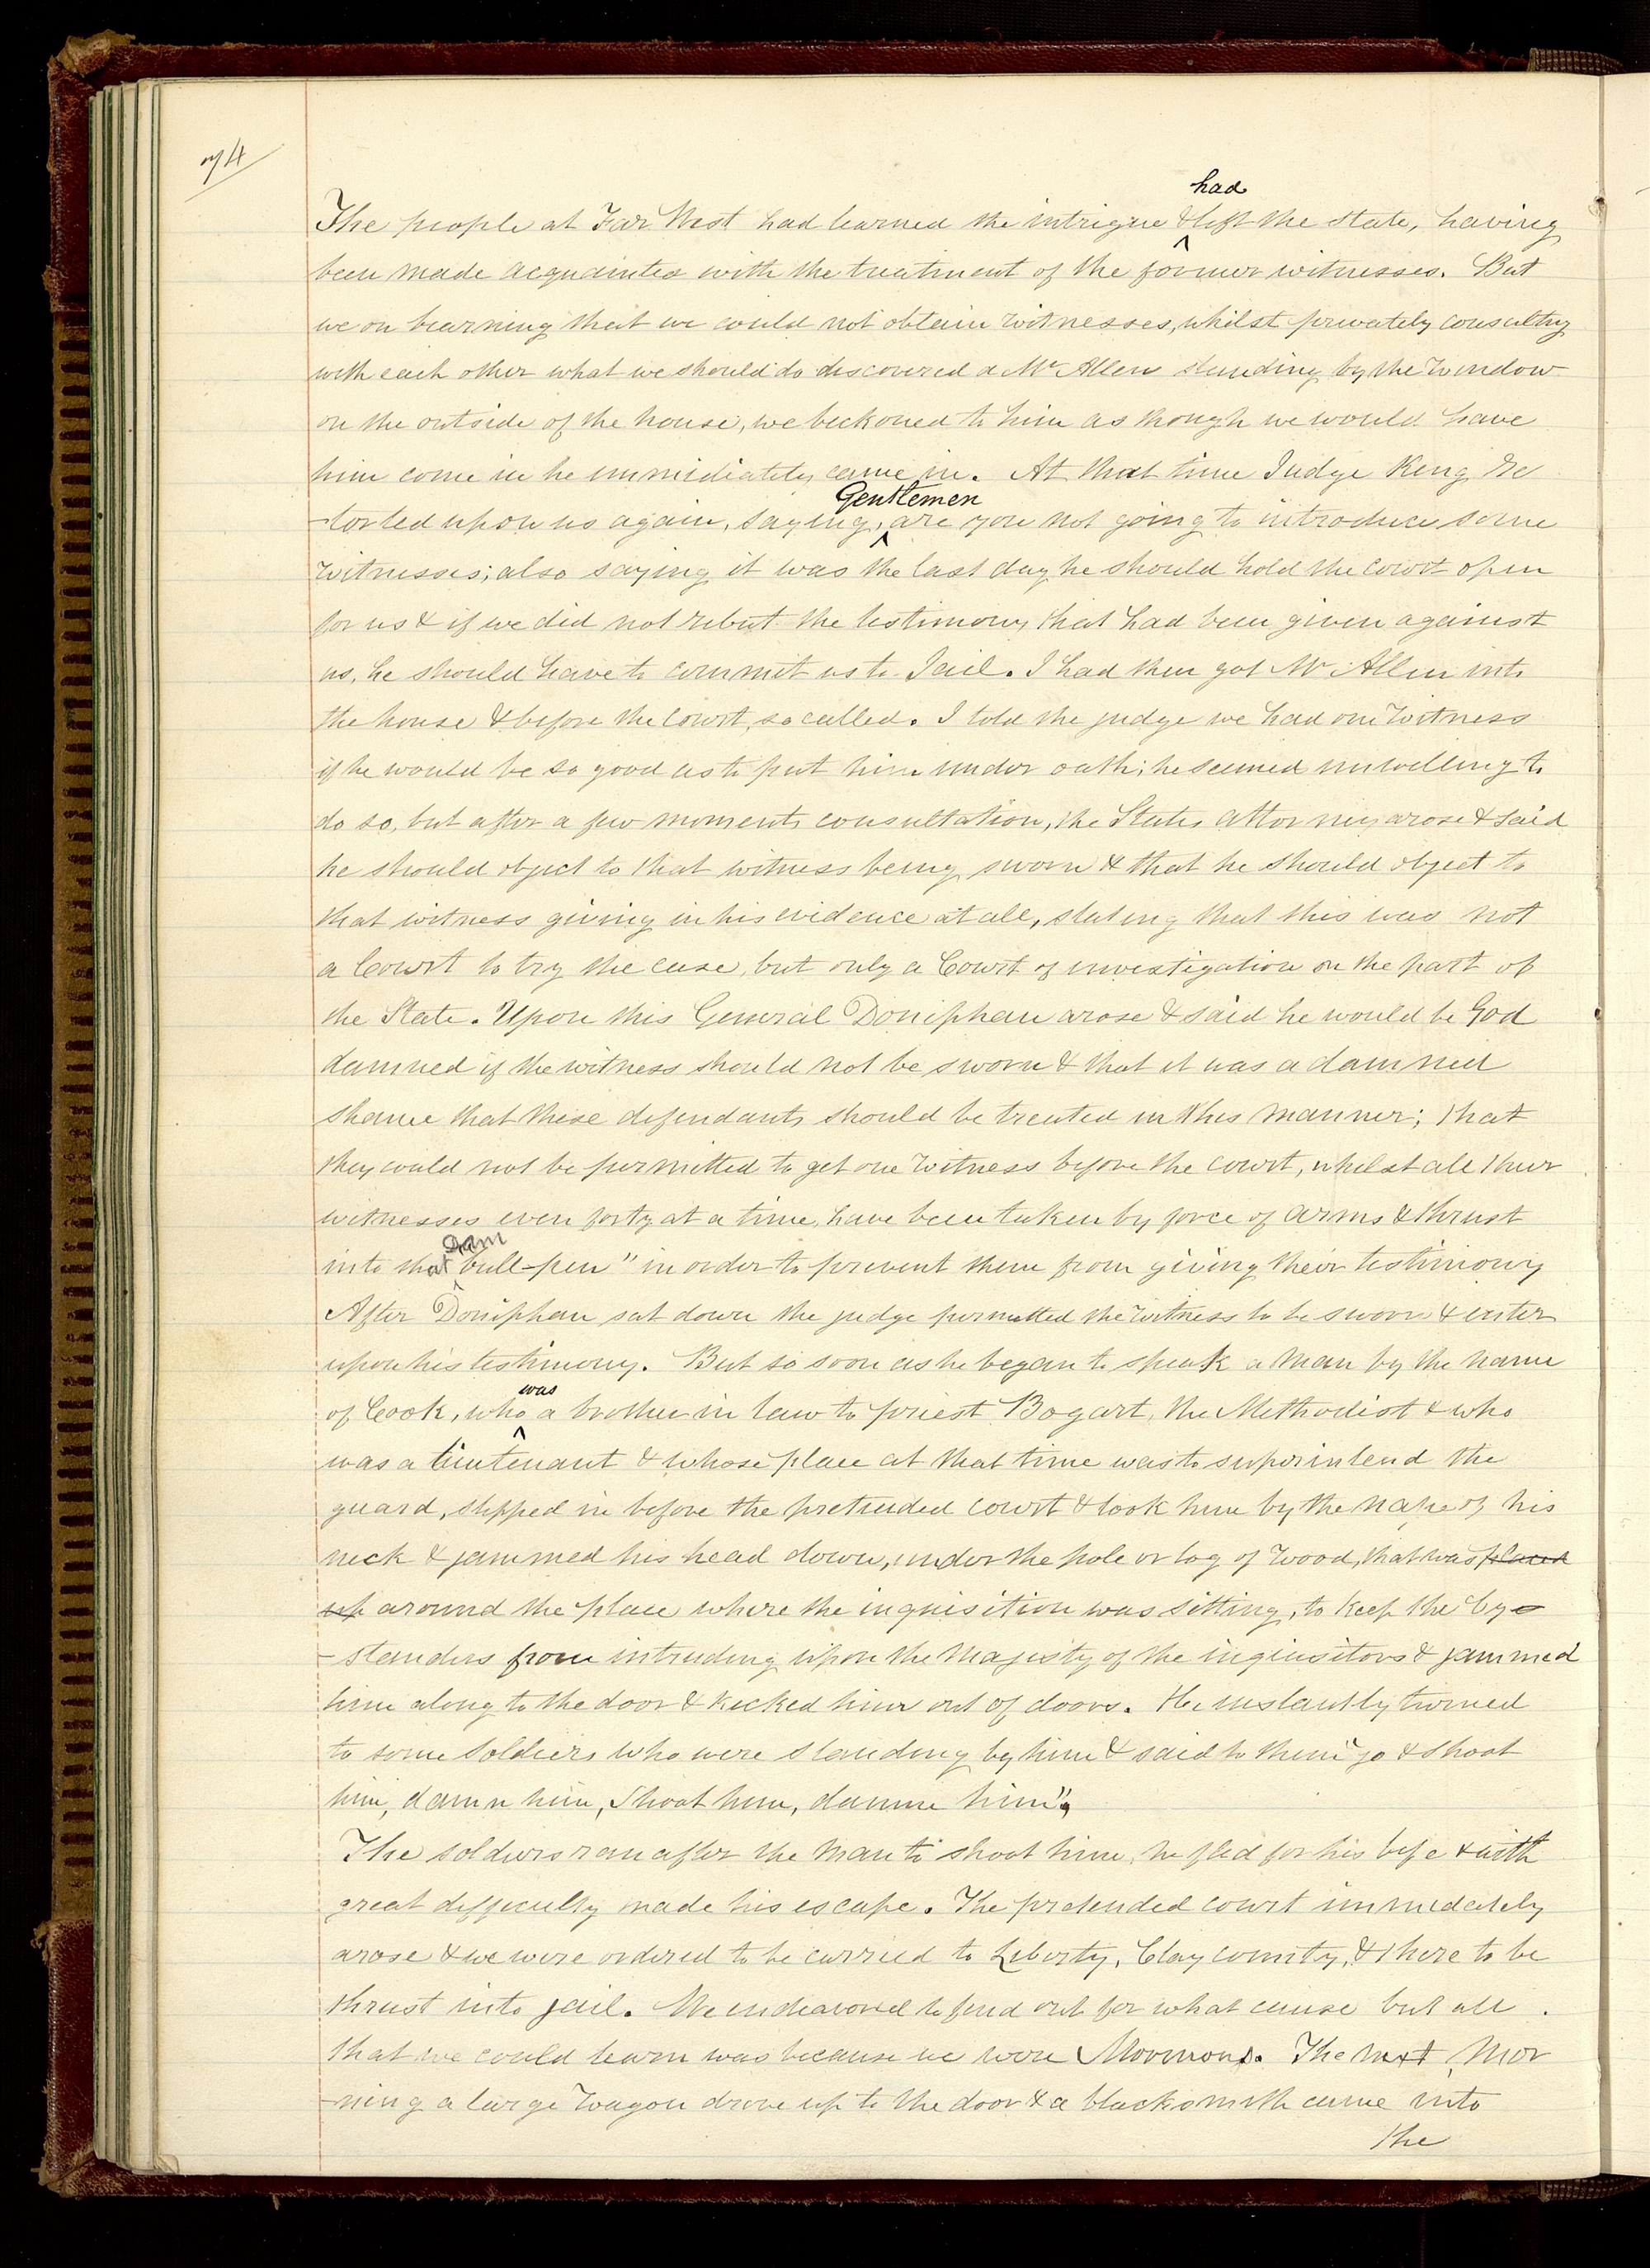 74
had
The people at Far West had learned the intrigue & left the state, having
been made acquainted with the treatment of the former witnesses. But
we on learning that we could not obtain witnesses, whilst privately consulting
with each other what we should do discovered a Mr Allen standing by the window
on the outside of the house, we beckoned to him as though we would have
him come in he immediately came in. At that time Judge King re
Gentlemen
-torted upon us again, saying, are you not going to introduce some
witnesses; also saying it was the last day he should hold the court open
for us & if we did not rebut the testimony that had been given against
us, he should have to commit us to Jail. I had then got Mr Allen into
the house & before the Court, so called. I told the judge we had one witness
if he would be so good as to put him under oath; he seemed unwilling to
do so, but after a few moments consultation, the States attorney arose & said
he should object to that witness being sworn & that he should object to
that witness giving in his evidence at all, stating that this was not
a Court to try the case, but only a Court of investigation on the part of
the State. Upon this General Doniphan arose & said he would be God
damned if the witness should not be sworn & that it was a damned
shame that these defendants should be treated in this manner; that
they could not be permitted to get one witness before the court, whilst all their
witnesses even forty at a time, have been taken by force of arms & thrust
dam
into that bull-pen" in order to prevent them from giving their testimony
After Doniphan sat down the judge permitted the witness to be sworn & enter
upon his testimony. But so soon as he began to speak a man by the name
was
of Cook, who a brother in law to priest Bogart, the Methodist & who
was a lieutenant & whose place at that time was to superintend the
guard, stepped in before the pretended court & took him by the nape of his
neck & jammed his head down, under the pole or log of wood, that was placed
up around the place where the inquisition was sitting, to keep the by-
-standers from intruding upon the majesty of the inquisitors & jammed
him along to the door & kicked him out of doors. He instantly turned
to some soldiers who were standing by him & said to them "go & shoot
him, damn him, shoot him, damn him".
The soldiers ran after the man to shoot him, he fled for his life & with
great difficulty made his escape. The pretended court immedately
arose & we were ordered to be carried to Liberty, Clay county, & there to be
thrust into jail. We endeavored to find out for what cause but all
that we could learn was because we were Mormons. The next mor
-ning a large wagon drove up to the door & a blacksmith came into
the